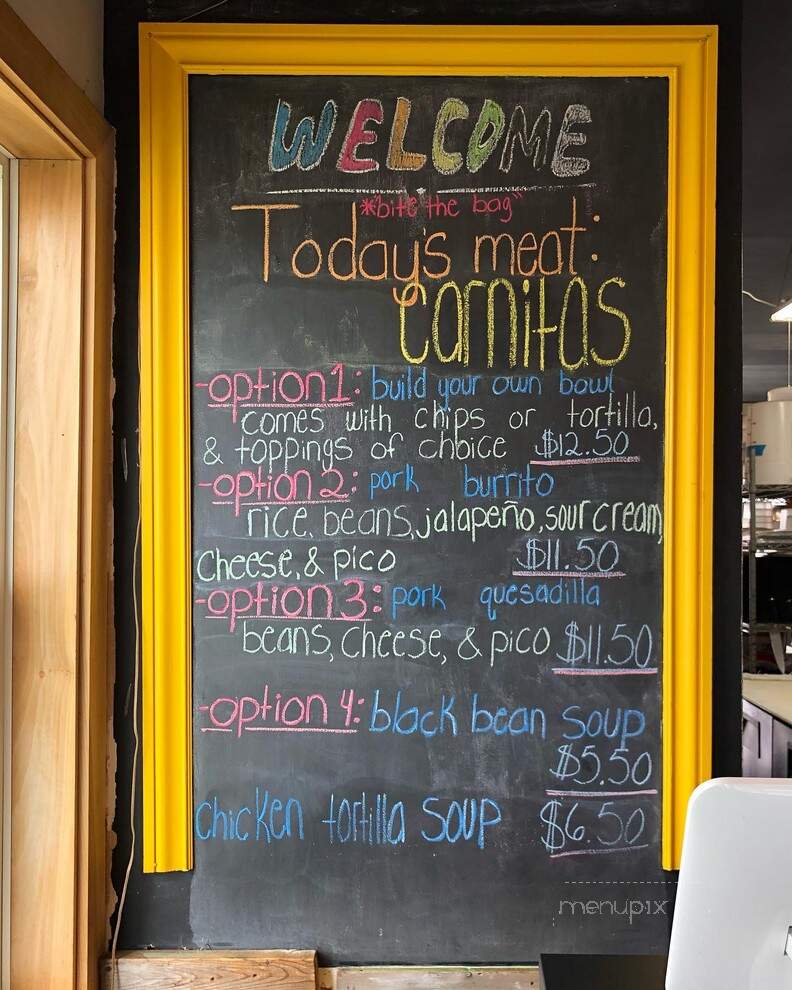 WELCOME
*"bite the bag"
Today's meat:
carnitas
-option 1: build your own bowl
comes with chips or tortilla,
& toppings of choice $12.50
-option 2: pork burrito
rice, beans, jalapeño, sour cream,
Cheese, & pico $11.50
-option 3: pork quesadilla
beans, Cheese, & pico $11.50
-option 4: black bean soup
$5.50
chicken tortilla soup $6.50
menupix